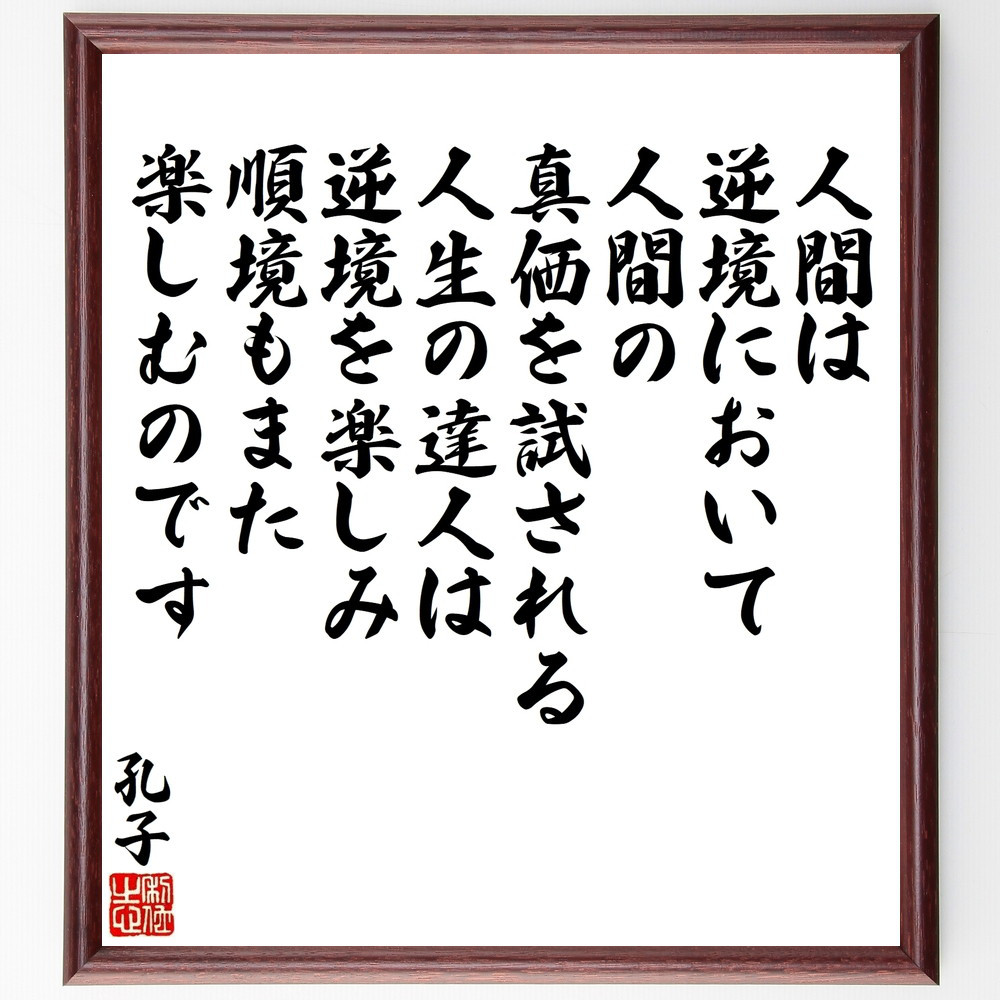 人間は
逆境において
人間の
真価を試される
人生の達人は
逆境を楽しみ
順境もまた
楽しむのです
孔子